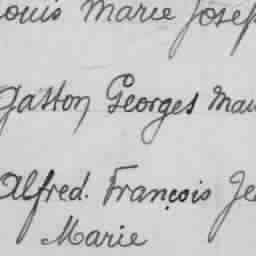 ouis Marie Josep
Gaston Georges Mau
Alfred. François Je
Marie